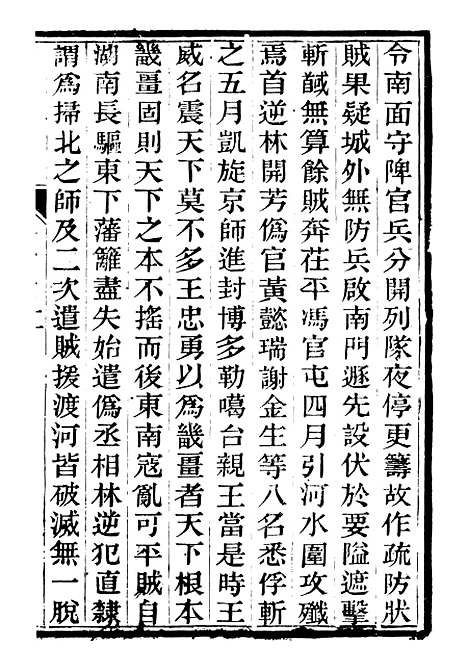 令南面守陴官兵分開列隊夜停更籌故作疏防狀
賊果疑城外無防兵啟南門遯先設伏於要隘遮擊
斬馘無算餘賊奔茌平馮官屯四月引河水圍攻殲
焉首逆林開芳僞官黃懿瑞謝金生等八名悉俘斬
之五月凱旋京師進封博多勒噶台親王當是時王
威名震天下莫不多王忠勇以爲畿畺者天下根本
畿畺固則天下之本不搖而後東南寇亂可平賊自
湖南長驅東下藩籬盡失始遣僞丞相林逆犯直隸
謂爲掃北之師及二次遣賊援渡河皆破滅無一脫